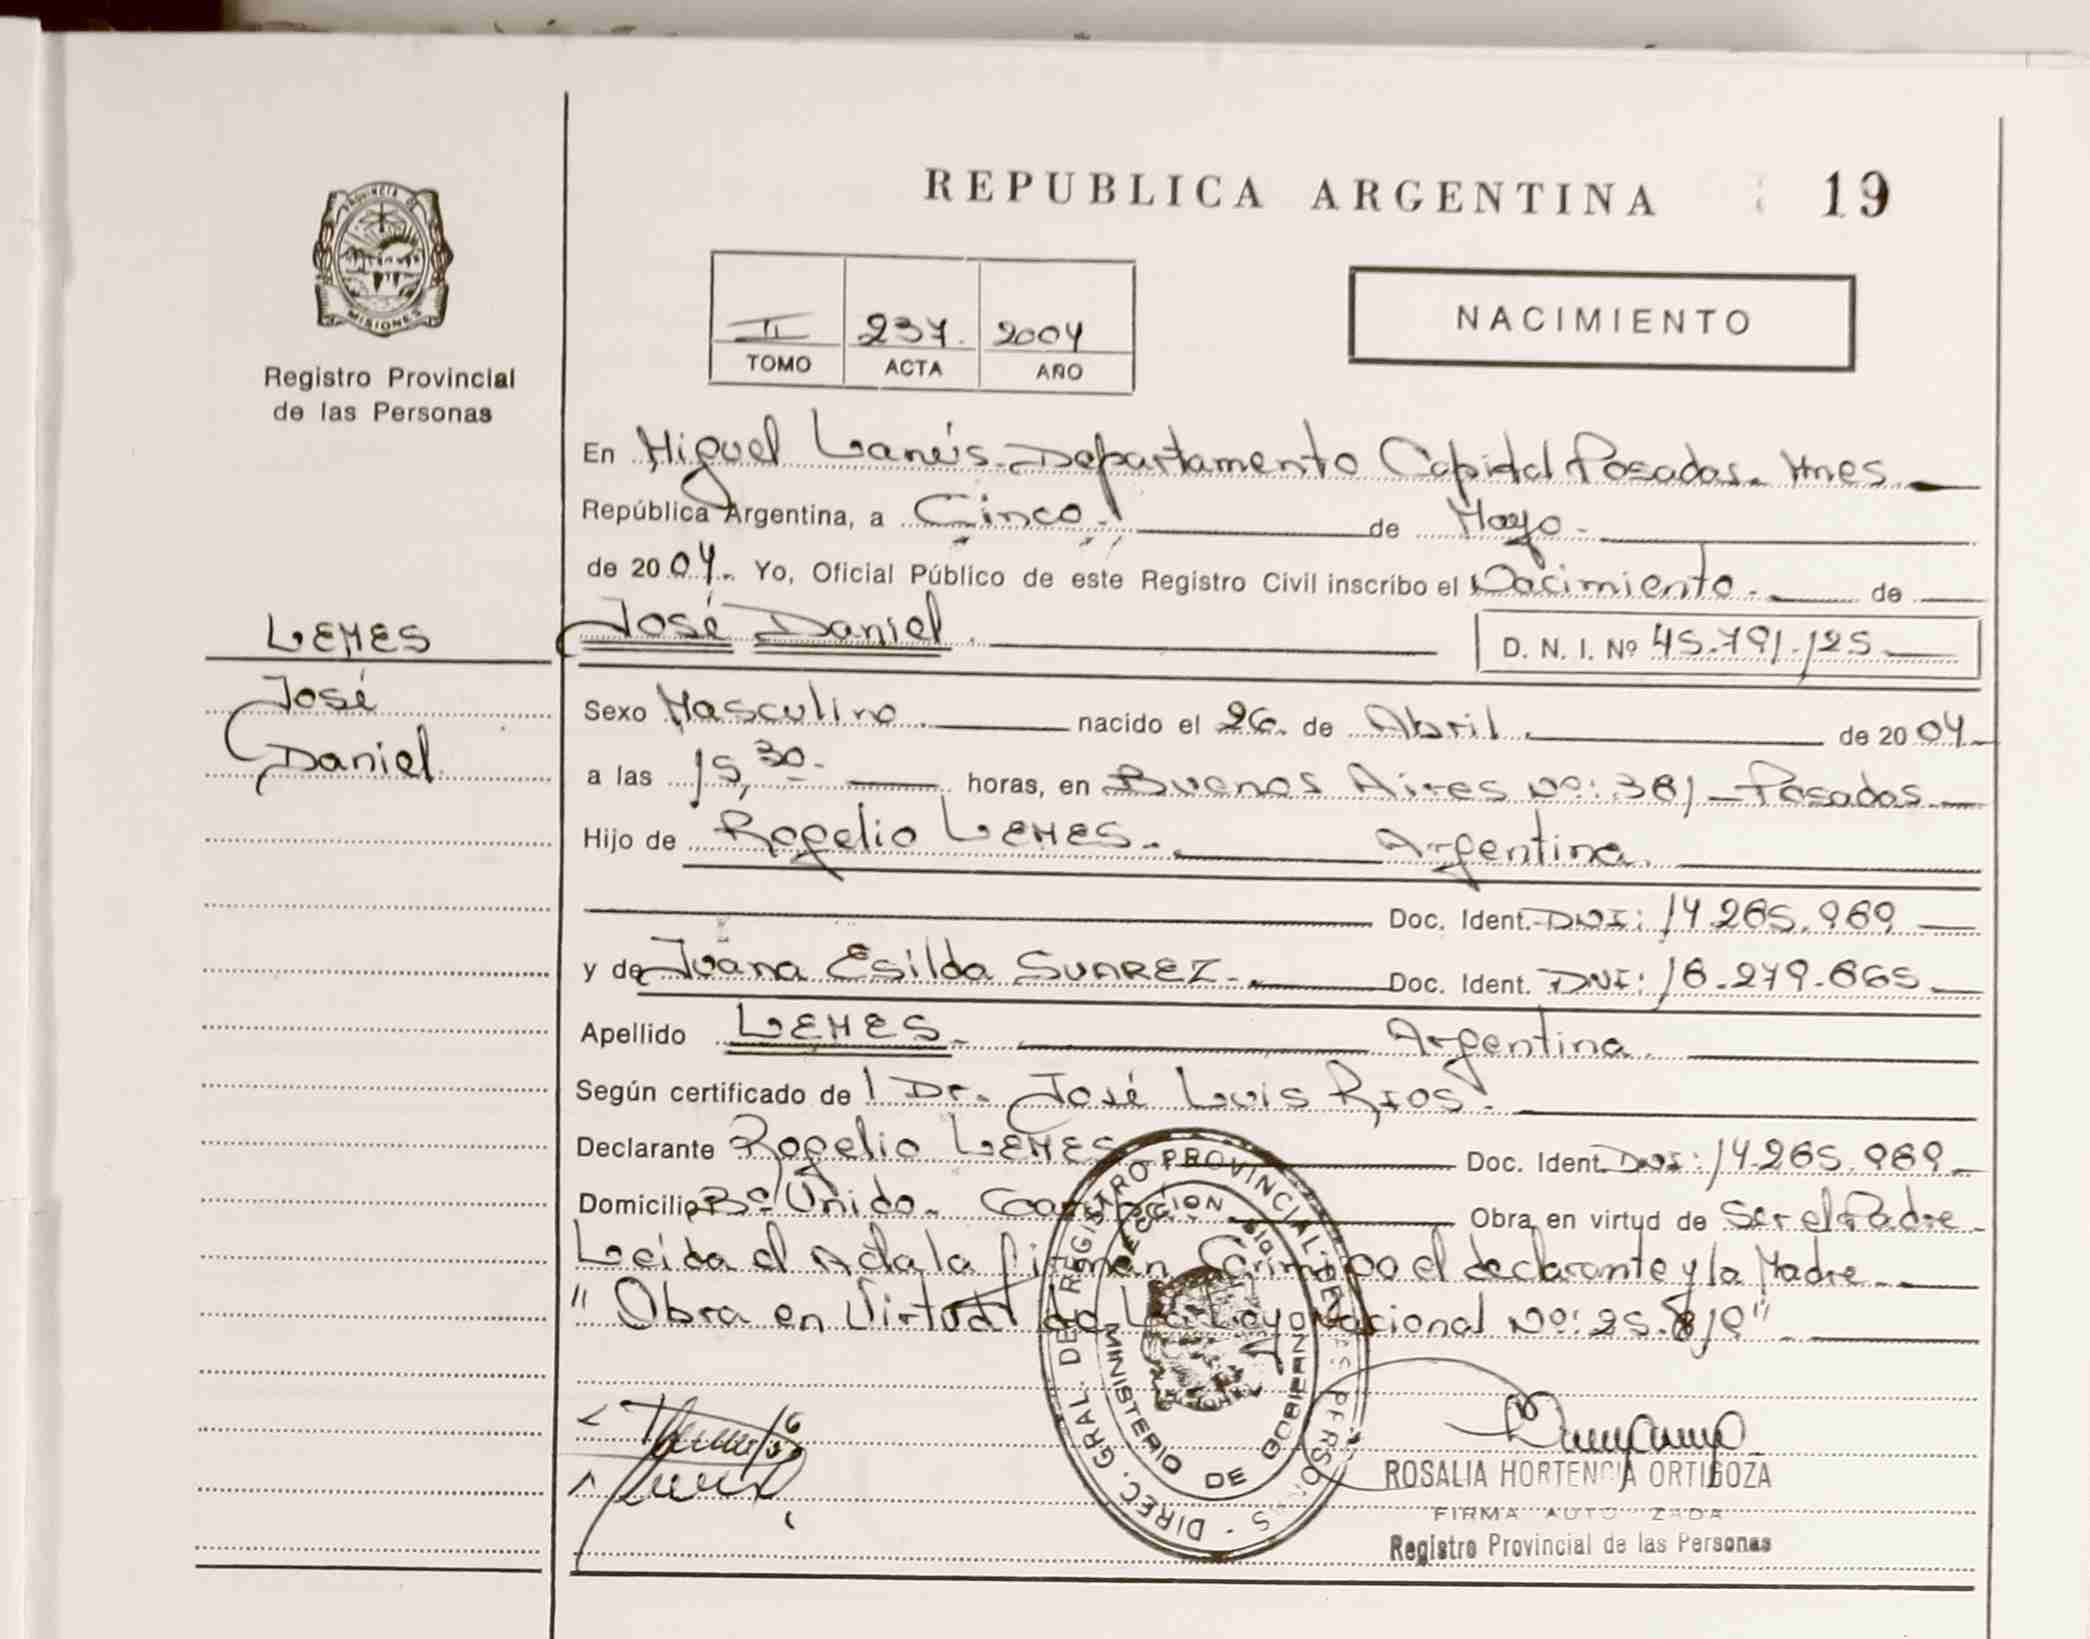 REPUBLICA ARGENTINA 19
PROVINCIA DE
MISIONES
Registro Provincial
de las Personas
II 237. 2004
TOMO ACTA AÑO
NACIMIENTO
En Miguel Lanús. Departamento Capital Posadas. Mnes.
República Argentina, a Cinco. de Mayo.
de 2004. Yo, Oficial Público de este Registro Civil inscribo el Nacimiento. de
LEMES
José
Daniel
José Daniel. D. N. I. Nº 45.791.125
Sexo Masculino. nacido el 26. de Abril. de 2004
a las 15,30. horas, en Buenos Aires Nº: 381 - Posadas.
Hijo de Rogelio LEMES. Argentina.
Doc. Ident. DNI: 14.265.969
y de Juana Esilda SUAREZ. Doc. Ident. DNI: 16.279.665
Apellido LEMES. Argentina.
Según certificado de l Dr. José Luis Ríos.
Declarante Rogelio LEMES Doc. Ident. DNI: 14.265.969
Domicilio Bº Unido. Obra en virtud de Ser el Padre
Leida el Acta la firman Conmigo el declarante y la Madre
"Obra en Virtud de La Ley Nacional Nº: 25.819"
DIREC. GRAL. DEL REGISTRO PROVINCIAL DE LAS PERSONAS
MINISTERIO DE GOBIERNO
ROSALIA HORTENCIA ORTIGOZA
FIRMA AUTORIZADA
Registro Provincial de las Personas